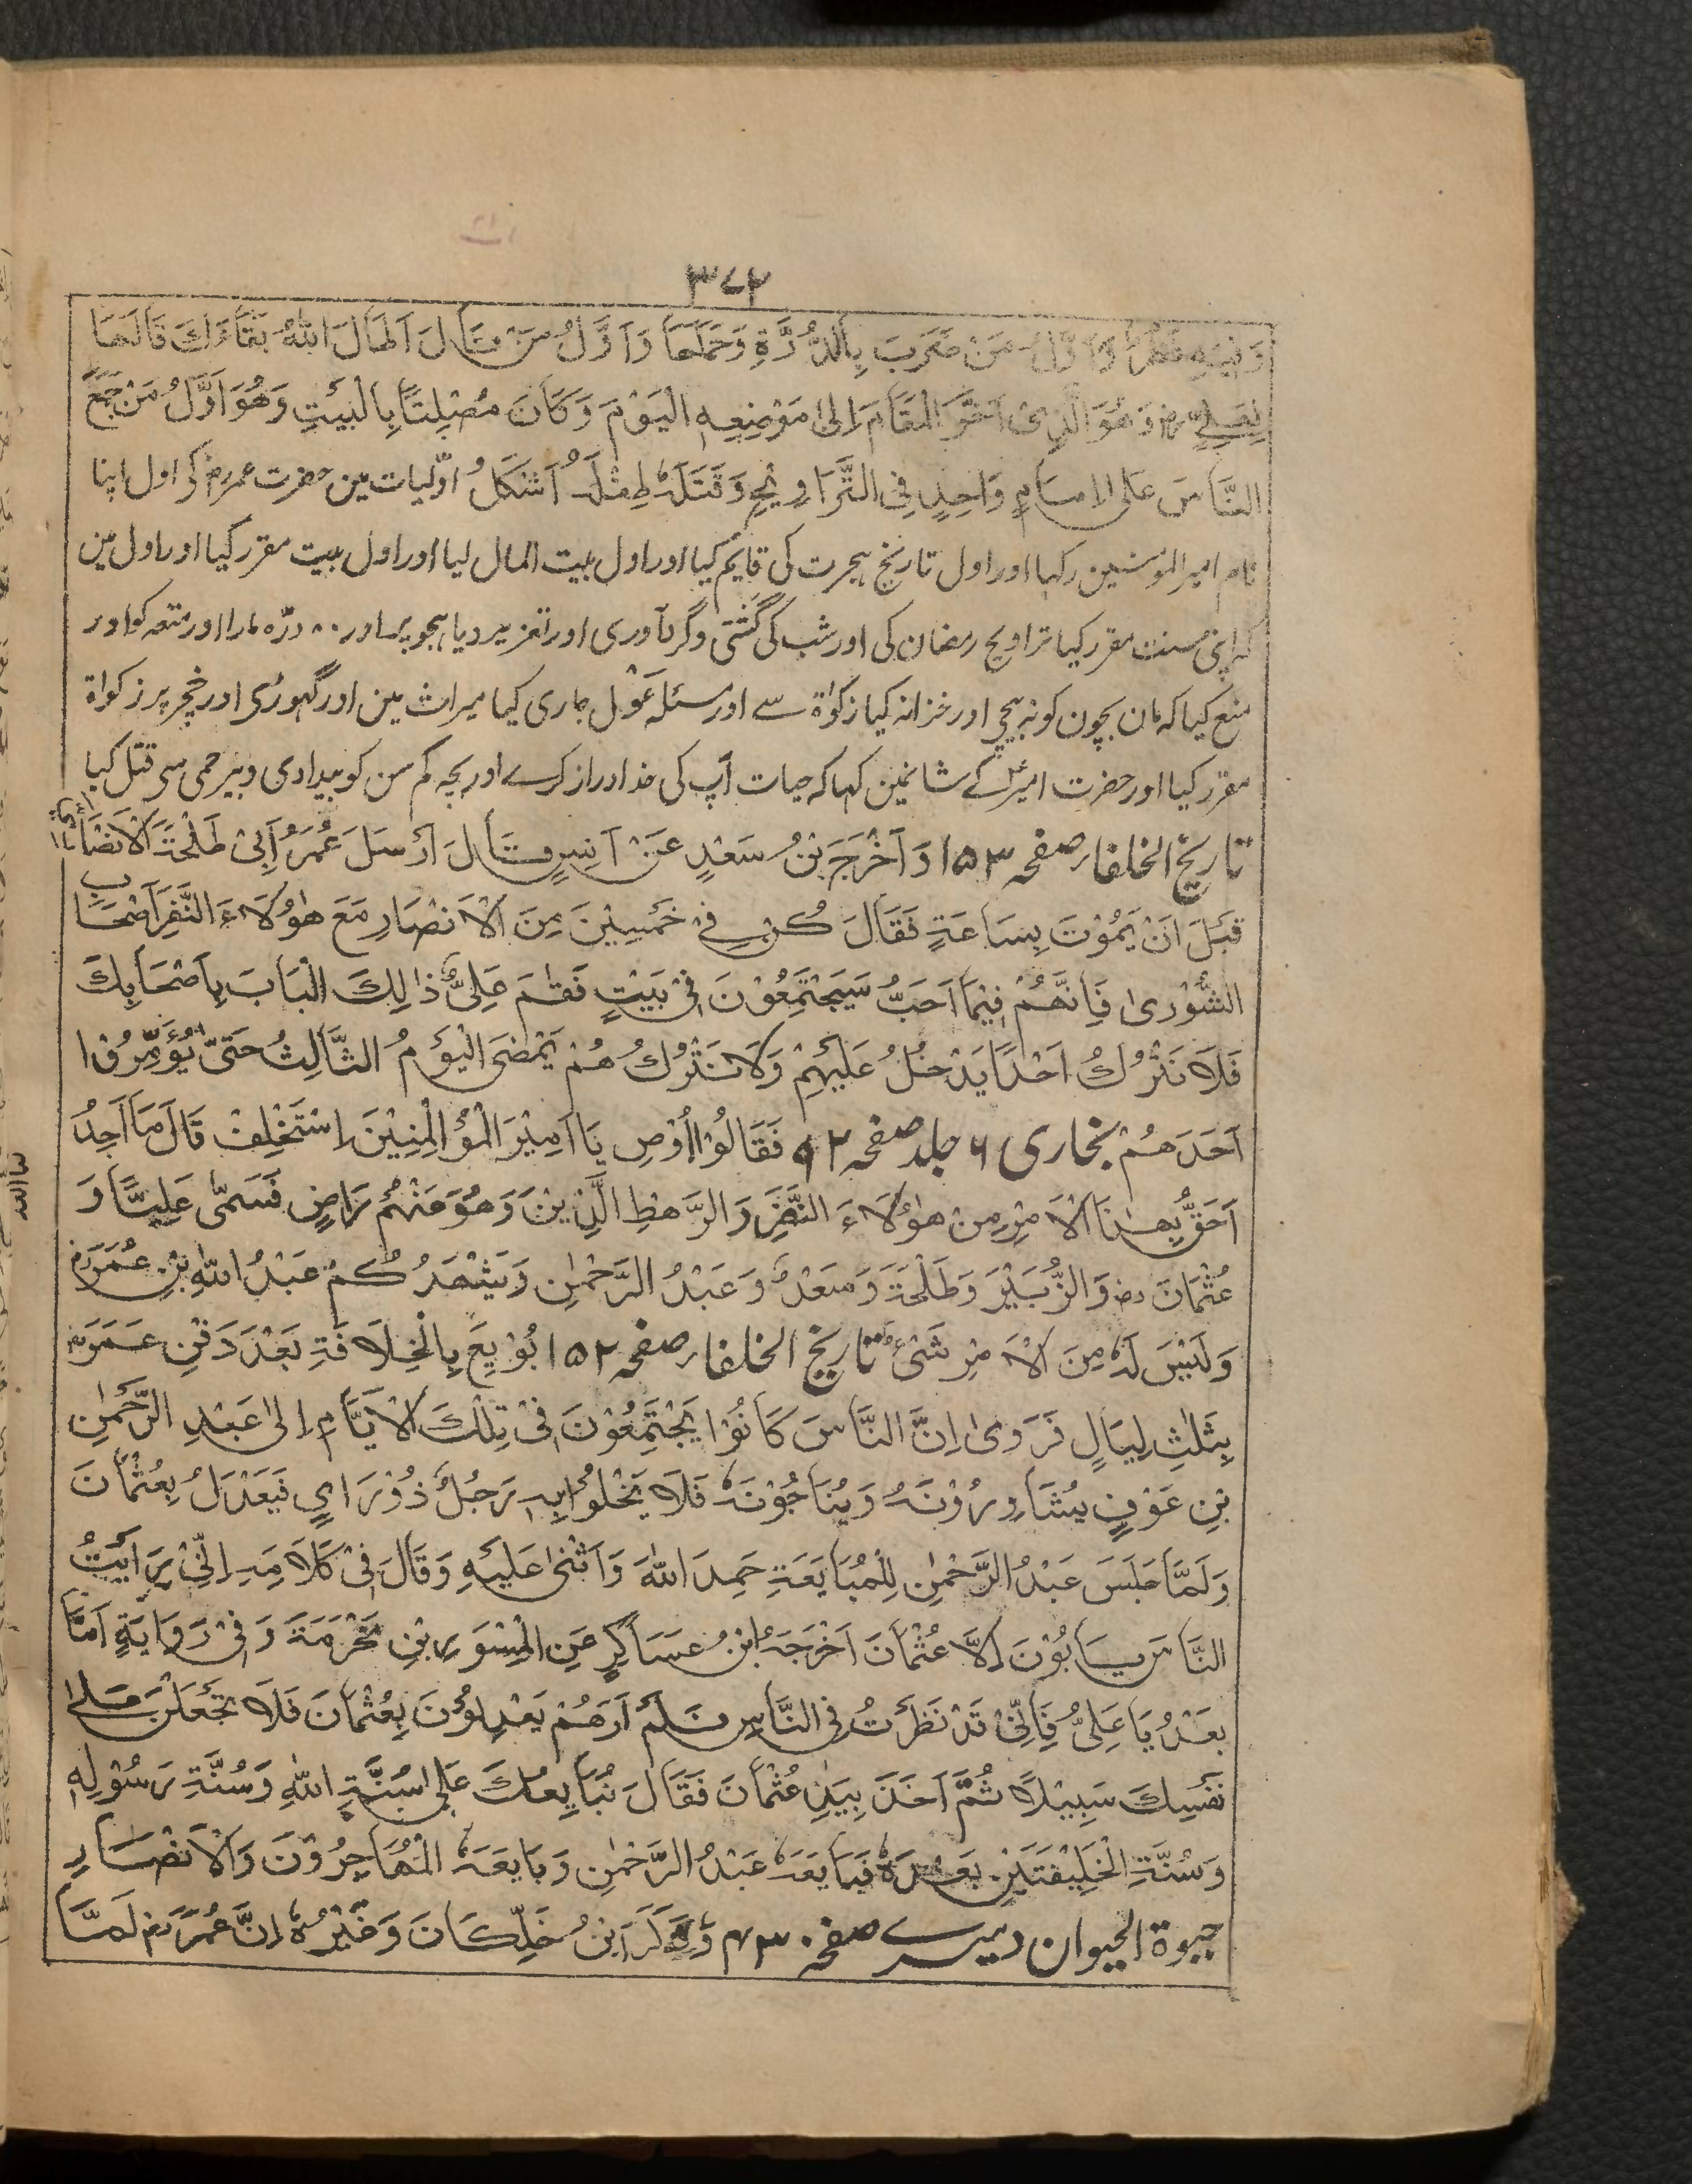 ۳۷۲
مَنْ ضَرَبَ بِالدُّرَّةِ وَحَمَلَهَا وَاَوَّلُ مَنْ قَالَ اَطَالَ اللهُ بَقَاءَكَ قَالَهَا
لِعَلِيٍّ رض وَهُوَ الَّذِیْ اَخَّرَ الْمَقَامَ اِلیٰ مَوْضِعِهِ الْیَوْمَ وَكَانَ مُصْلِتًا بِالْبَیْتِ وَهُوَ اَوَّلُ مَنْ جَمَعَ
النَّاسَ عَلَی الامامٍ وَاحِدٍ فِی التَّرَاوِیْحِ وَقَتَلَهٗ طِفْلَهُ اَشْكَلُ اوّلیات مین حضرت عمررض کی اول اپنا
نام امیر المؤمنین رکہا اور اول تاریخ ہجرت کی قایم کیا اور اول بیت المال لیا اور اول بیت مقرر کیا اور اول مین
کہ اپنی سنت مقرر کیا تراویح رمضان کی اور شب کی گشتی وگردآوری اور تعزیر دیا ہجو پر اور ۸۰ درّہ مارا اور متعہ کو اور
منع کیا کہ مان بچون کو نہ بیچی اور خزانہ کیا زکوٰۃ سے اور مسئلہ عَوْل جاری کیا میراث مین اور گہوڑی اور خچر پر زکواۃ
مقرر کیا اور حضرت امیرؑ کے شانمین کہا کہ حیات آپ کی خدا دراز کرے اور بچہ کم سن کو بیدادی وبیرحمی سی قتل کیا
تاریخ الخلفار صفحہ ۱۵۳ وَاَخْرَجَ بْنُ سَعْدٍ عَنْ اَنَسٍ قَالَ اَرْسَلَ عُمَرُ اَبِیْ طَلْحَةَ الْاَنْصَارِ
قَبْلَ اَنْ یَمُوْتَ بِسَاعَةٍ فَقَالَ كُنْ فِیْ خَمْسِیْنَ مِنَ الْاَنْصَارِ مَعَ هٰؤُلَاءِ النَّفَرِ اَصْحَابِ
الشُّوْرىٰ فَاِنَّهُمْ فِیْمَا اَحَبُّ سَیَجْتَمِعُوْنَ فِیْ بَیْتٍ فَقُمْ عَلیٰ ذَالِكَ الْبَابَ بِاَصْحَابِكَ
فَلَا تَتْرُكُ اَحَدًا یَدْخُلُ عَلَیْهِمْ وَلَا تَتْرُكُ هُمْ یَمْضِیَ الْیَوْمُ الثَّالِثُ حَتّٰی یُؤَمِّرُوْا
اَحَدَهُمْ بخاری ۶ جلد صفحہ ۹۲ فَقَالُوْا اُوْصِ یَا اَمِیْرَ الْمُؤْمِنِیْنَ اِسْتَخْلِفْ قَالَ مَا اَجِدُ
اَحَقُّ بِهٰذَا الْاَمْرِ مِنْ هٰؤُلَاءِ النَّفَرِ وَالرَّهْطِ الَّذِیْنَ وَهُوَ مِنْهُمْ رَاضٍ فَسَمّٰی عَلِیًّا وَ
عُثْمَانَ رض وَالزُّبَیْرَ وَطَلْحَةَ وَسَعْدٌ وَعَبْدُ الرَّحْمٰنِ وَیَشْهَدُ كُمْ عَبْدُ اللهِ بْنِ عُمَرَرض
وَلَیْسَ لَهٗ مِنَ الْاَمْرِ شَیْئٌ تاریخ الخلفار صفحہ ۱۵۲ بُوْیِعَ بِالْخِلَافَةِ بَعْدَ دَفْنِ عُمَرَرض
بِثَلٰثِ لِیَالٍ فَرَویٰ اِنَّ النَّاسَ كَانُوْا یَجْتَمِعُوْنَ فِیْ تِلْكَ الْاَیَّامِ اِلیٰ عَبْدِ الرَّحْمٰنِ
بْنِ عَوْفٍ یُشَاوِرُوْنَهُ وَیُنَاجُوْنَهٗ فَلَا یَخْلُوْا بِهِ رَجُلٌ ذُوْ رَایٍ فَیَعْدَلُ بِعُثْمَانَ
وَلَمَّا جَلَسَ عَبْدُ الرَّحْمٰنِ لِلْمُبَایَعَةِ حَمِدَ اللهَ وَاَثْنیٰ عَلَیْهِ وَقَالَ فِیْ كَلَامِهِ اِنِّیْ رَاَیْتُ
النَّاسَ یَابُوْنَ اِلَّا عُثْمَانَ اَخْرَجَهُ ابْنُ عَسَاكِرٍ عَنِ الْمِسْوَرِ بْنِ مَخْرَمَةَ وَفِیْ رَوَایَةٍ اَمَّا
بَعْدُ یَا عَلِیُّ فَاِنِّیْ قَدْ نَظَرْتُ فِی النَّاسِ فَلَمْ اَرَهُمْ یَعْدِلُوْنَ بِعُثْمَانَ فَلَا تَجْعَلَنَّ عَلیٰ
نَفْسِكَ سَبِیْلًا ثُمَّ اَخَذَ بِیَدِ عُثْمَانَ فَقَالَ نُبَایِعُكَ عَلیٰ سُنَّةِ اللهِ وَسُنَّةِ رَسُوْلِهِ
وَسُنَّةِ الْخَلِیْفَتَیْنِ بَعْدَهٗ فَبَایَعَهٗ عَبْدُ الرَّحْمٰنِ وَبَایَعَهٗ الْمُهَاجِرُوْنَ وَالْاَنْصَارِ
حیوۃ الحیوان دمیرے صفحہ ۴۳۰ وَذَكَرَ ابْنُ خَلِّكَانَ وَغَیْرُهٗ اِنَّ عُمَرَرض لَمَّا